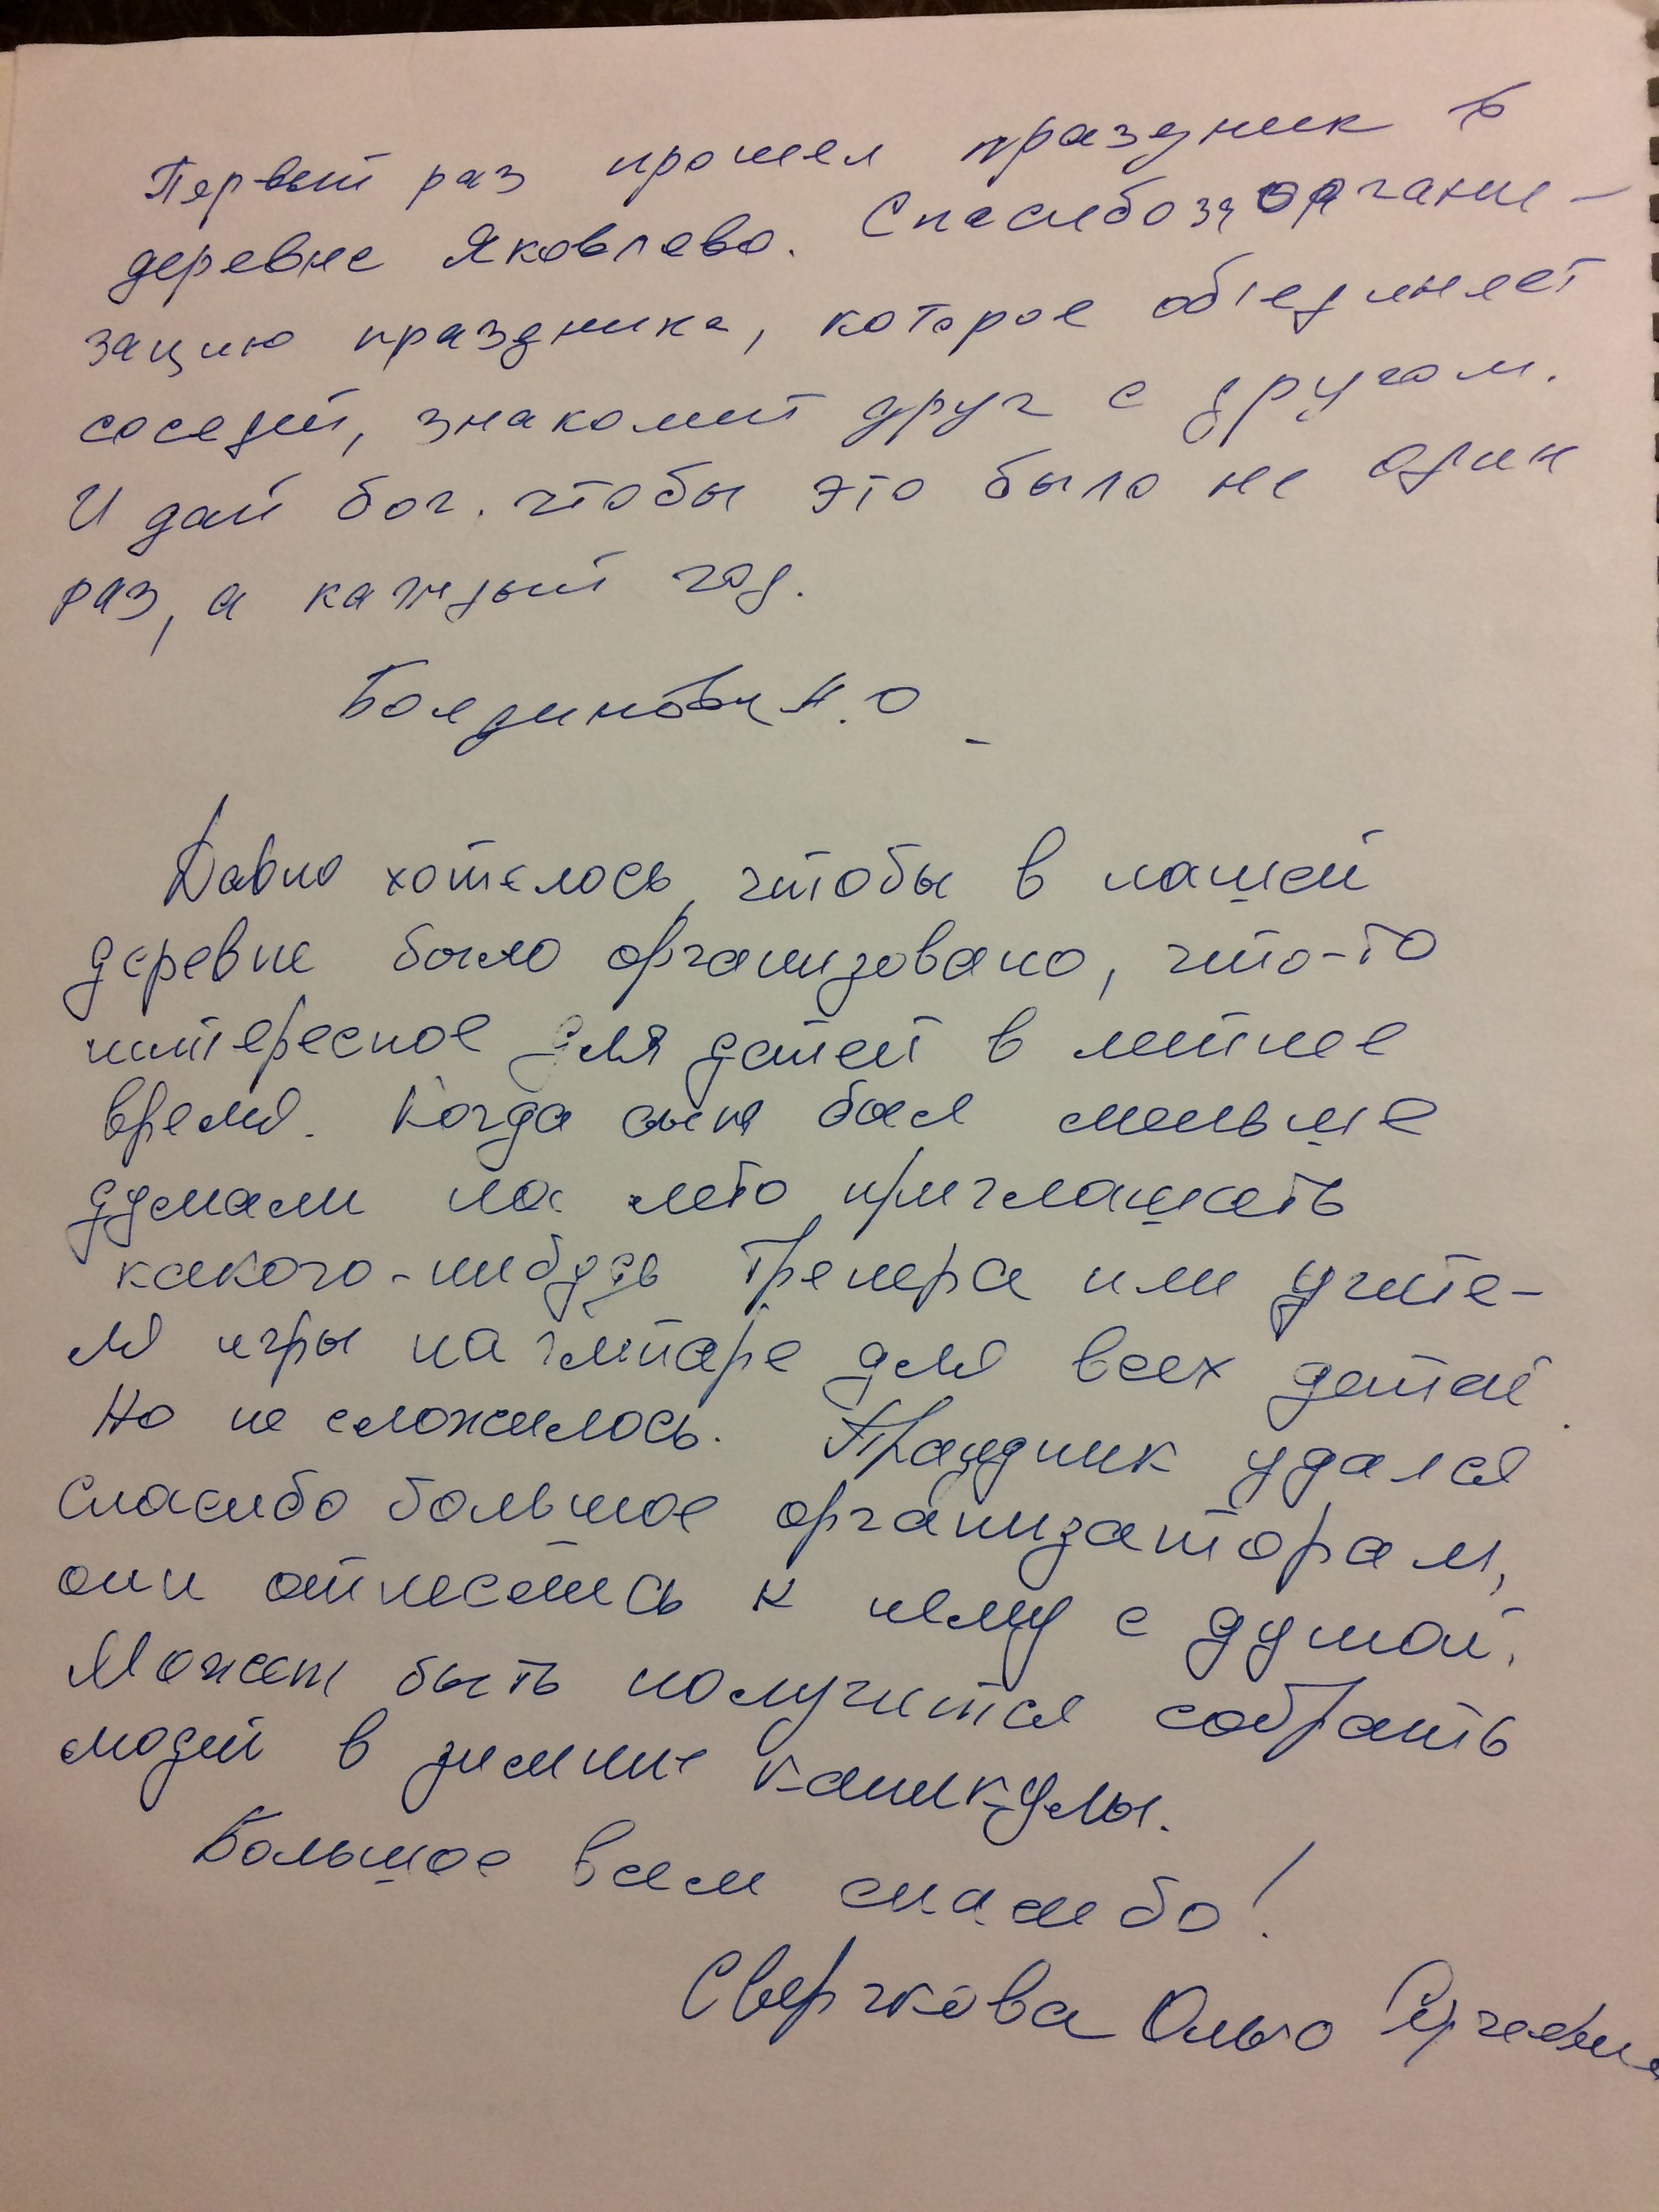 Первый раз прошел праздник в
деревне Яковлево. Спасибо за органи-
зацию праздника, которое об'единяет
соседей, знакомит друг с другом.
И дай бог. чтобы это было не один
раз, а каждый год.
Н.О
Давно хотелось, чтобы в нашей
деревне было организовано, что-то
интересное для детей в летнее
время. Когда сын был меньше
думали на лето приглашать
какого-нибудь тренера или учите-
ля игры на гитаре для всех детей.
Но не сложилось. Праздник удался
спасибо большое организаторам,
они отнеслись к нему с душой.
Может быть получится собрать
людей в зимние каникулы.
Большое всем спасибо!
Сверчкова Ольга Сергеевна